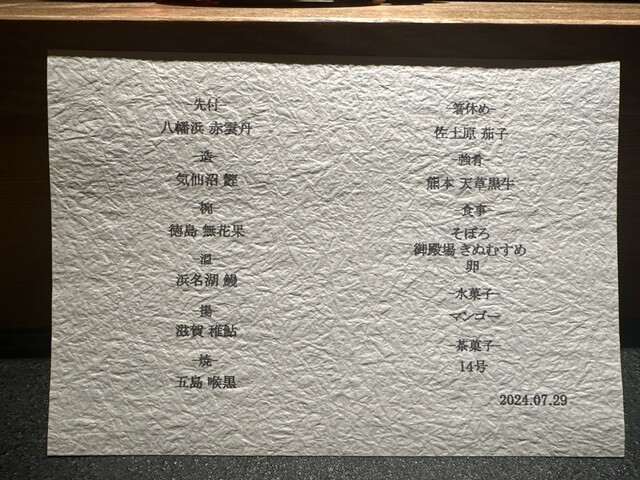 -先付-
八幡浜 赤雲丹
-造-
気仙沼 鰹
-椀-
徳島 無花果
-温-
浜名湖 鰻
-揚-
滋賀 稚鮎
-焼-
五島 喉黒
-箸休め-
佐土原 茄子
-強肴-
熊本 天草黒牛
-食事-
そぼろ
御殿場 きぬむすめ
卵
-水菓子-
マンゴー
-茶菓子-
14号
2024.07.29